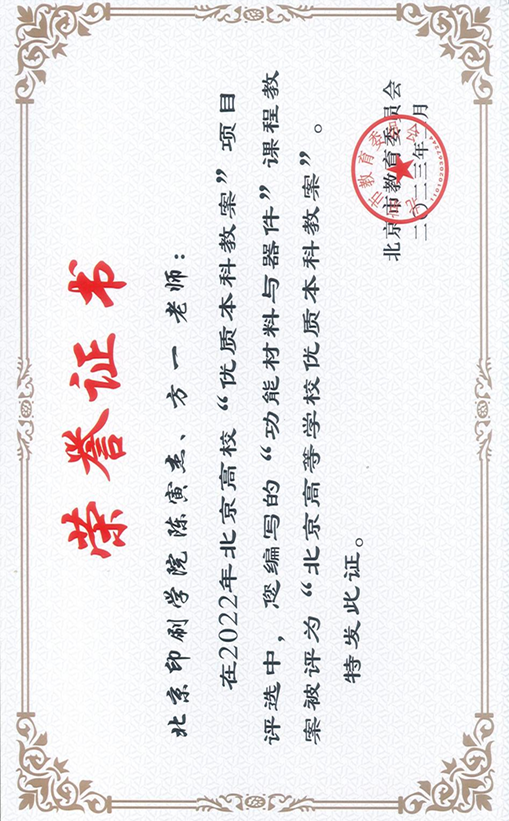 荣誉证书
北京印刷学院 陈寅杰、方一 老师：
在2022年北京高校“优质本科教案”项目
评选中，您编写的“功能材料与器件”课程教
案被评为“北京高等学校优质本科教案”。
特发此证。
北京市教育委员会
二〇二三年 月